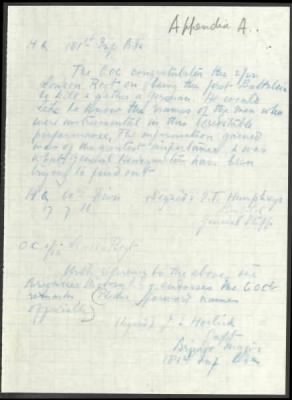 Appendix A.
H Q 181st Inf Bde
The GOC congratulates the 2/22
London Regt on being the first Battalion
to kill & gather a German. He would
like to know the names of the men who
were instrumental in this creditable
performance. The information gained
was of the greatest importance & was
what General Headquarters have been
trying to find out
H Q 60th Divn Signed J. T. Humphreys
17 7 16
General Staff
O C 2/22 London Regt
With reference to the above, the
Brigadier endorses the GOC's
remarks (Please forward names
specially)
Signed J L
Capt
Brigade Major
181st Inf Bde